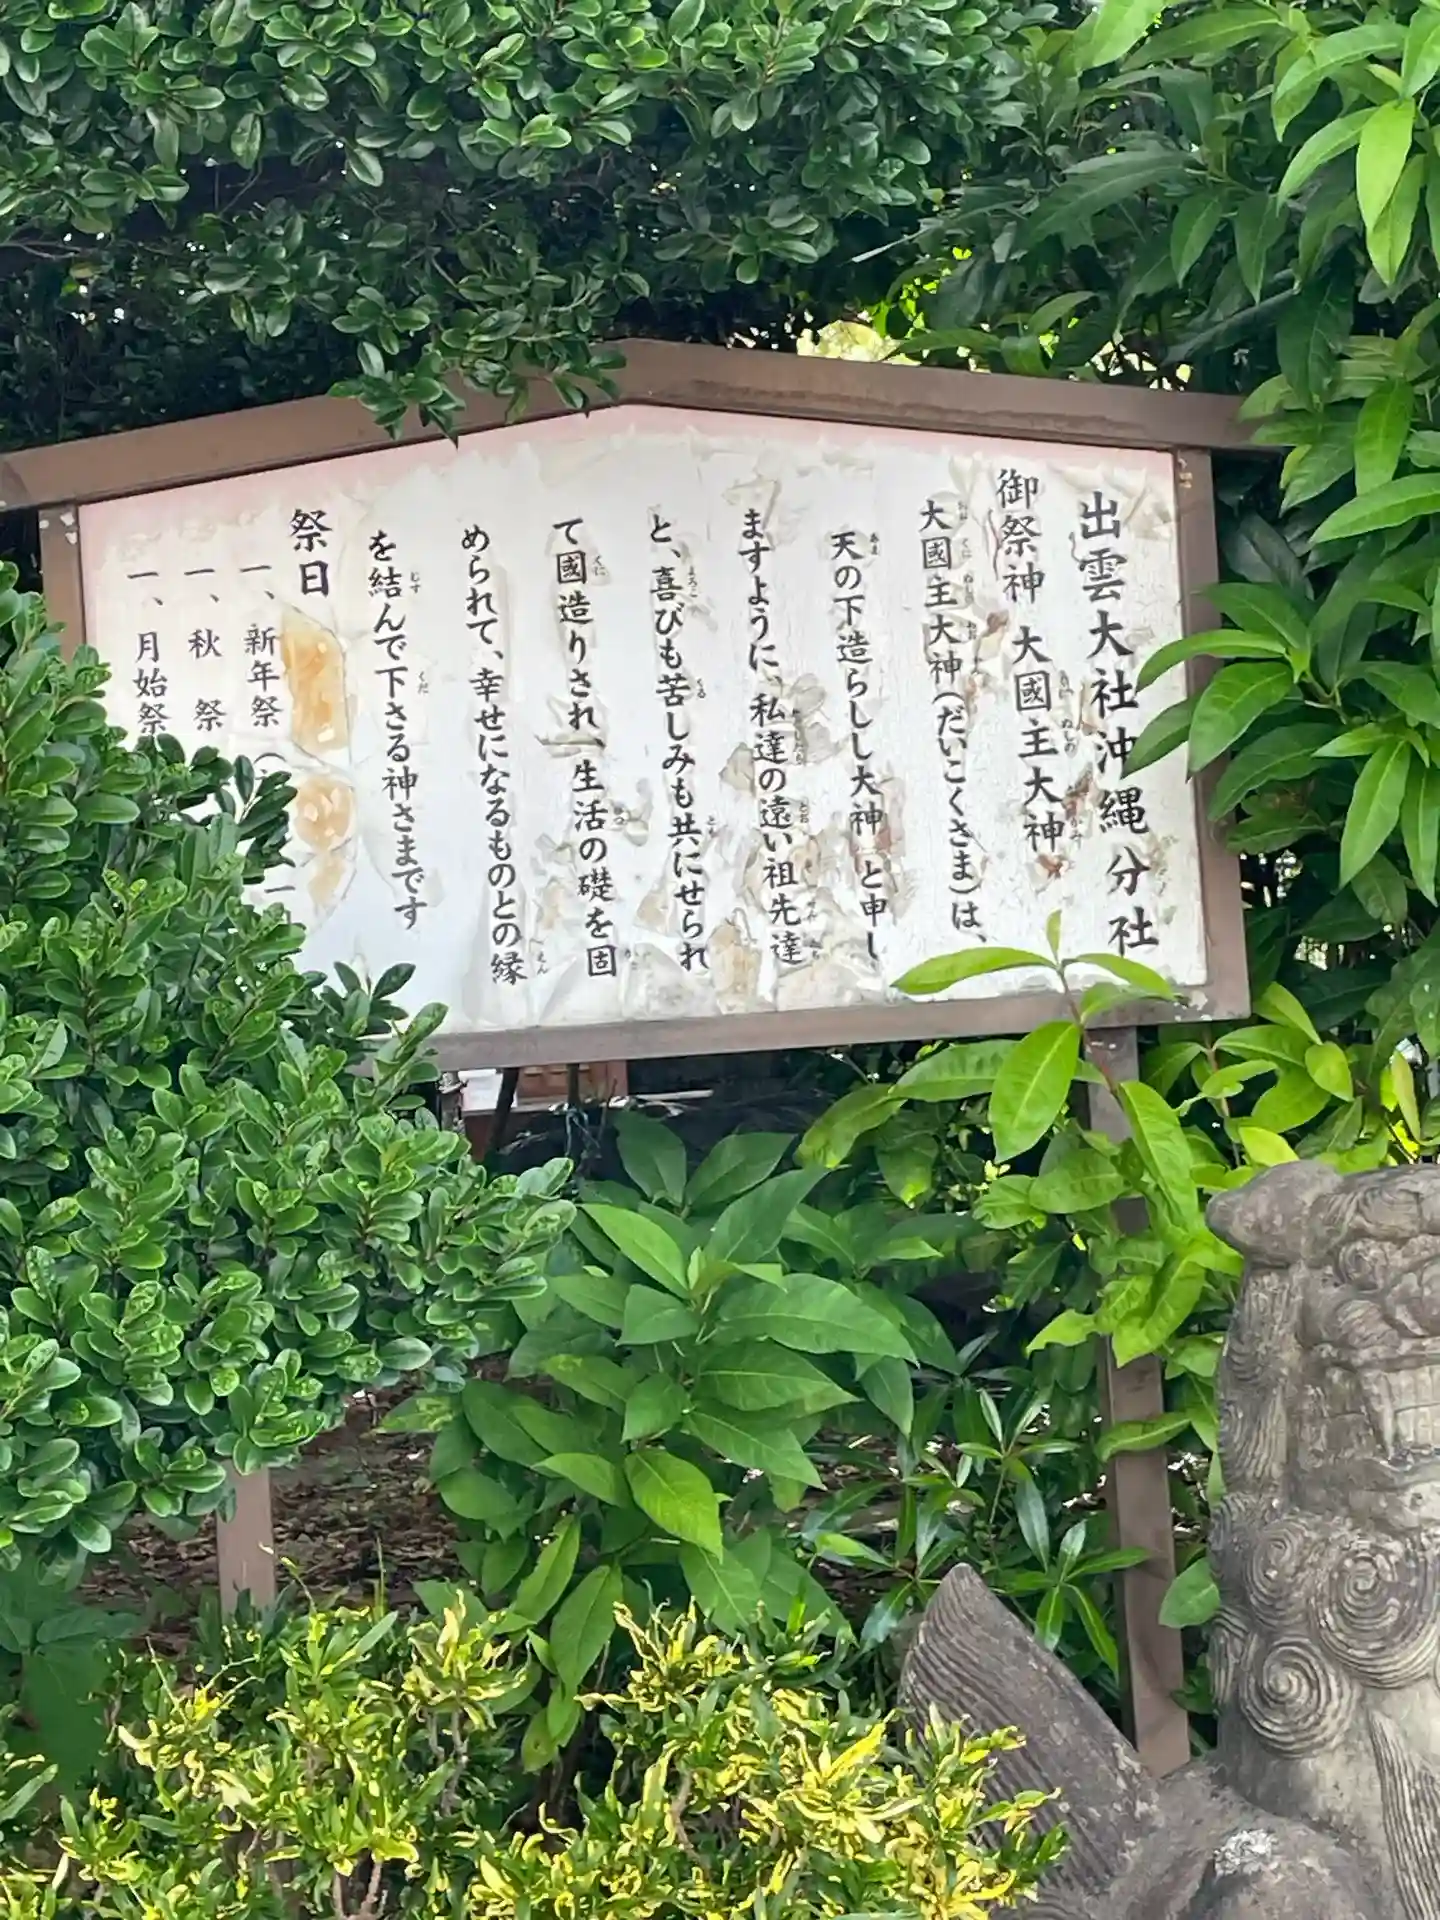 出雲大社沖縄分社
御祭神 大國主大神
大國主大神(だいこくさま)は、
天の下造らしし大神 と申し
ますように、私達の遠い祖先達
と、喜びも苦しみも共にせられ
て國造りされ、生活の礎を固
められて、幸せになるものとの縁
を結んで下さる神さまです
祭日
一、新年祭(
一、秋 祭
一、月始祭